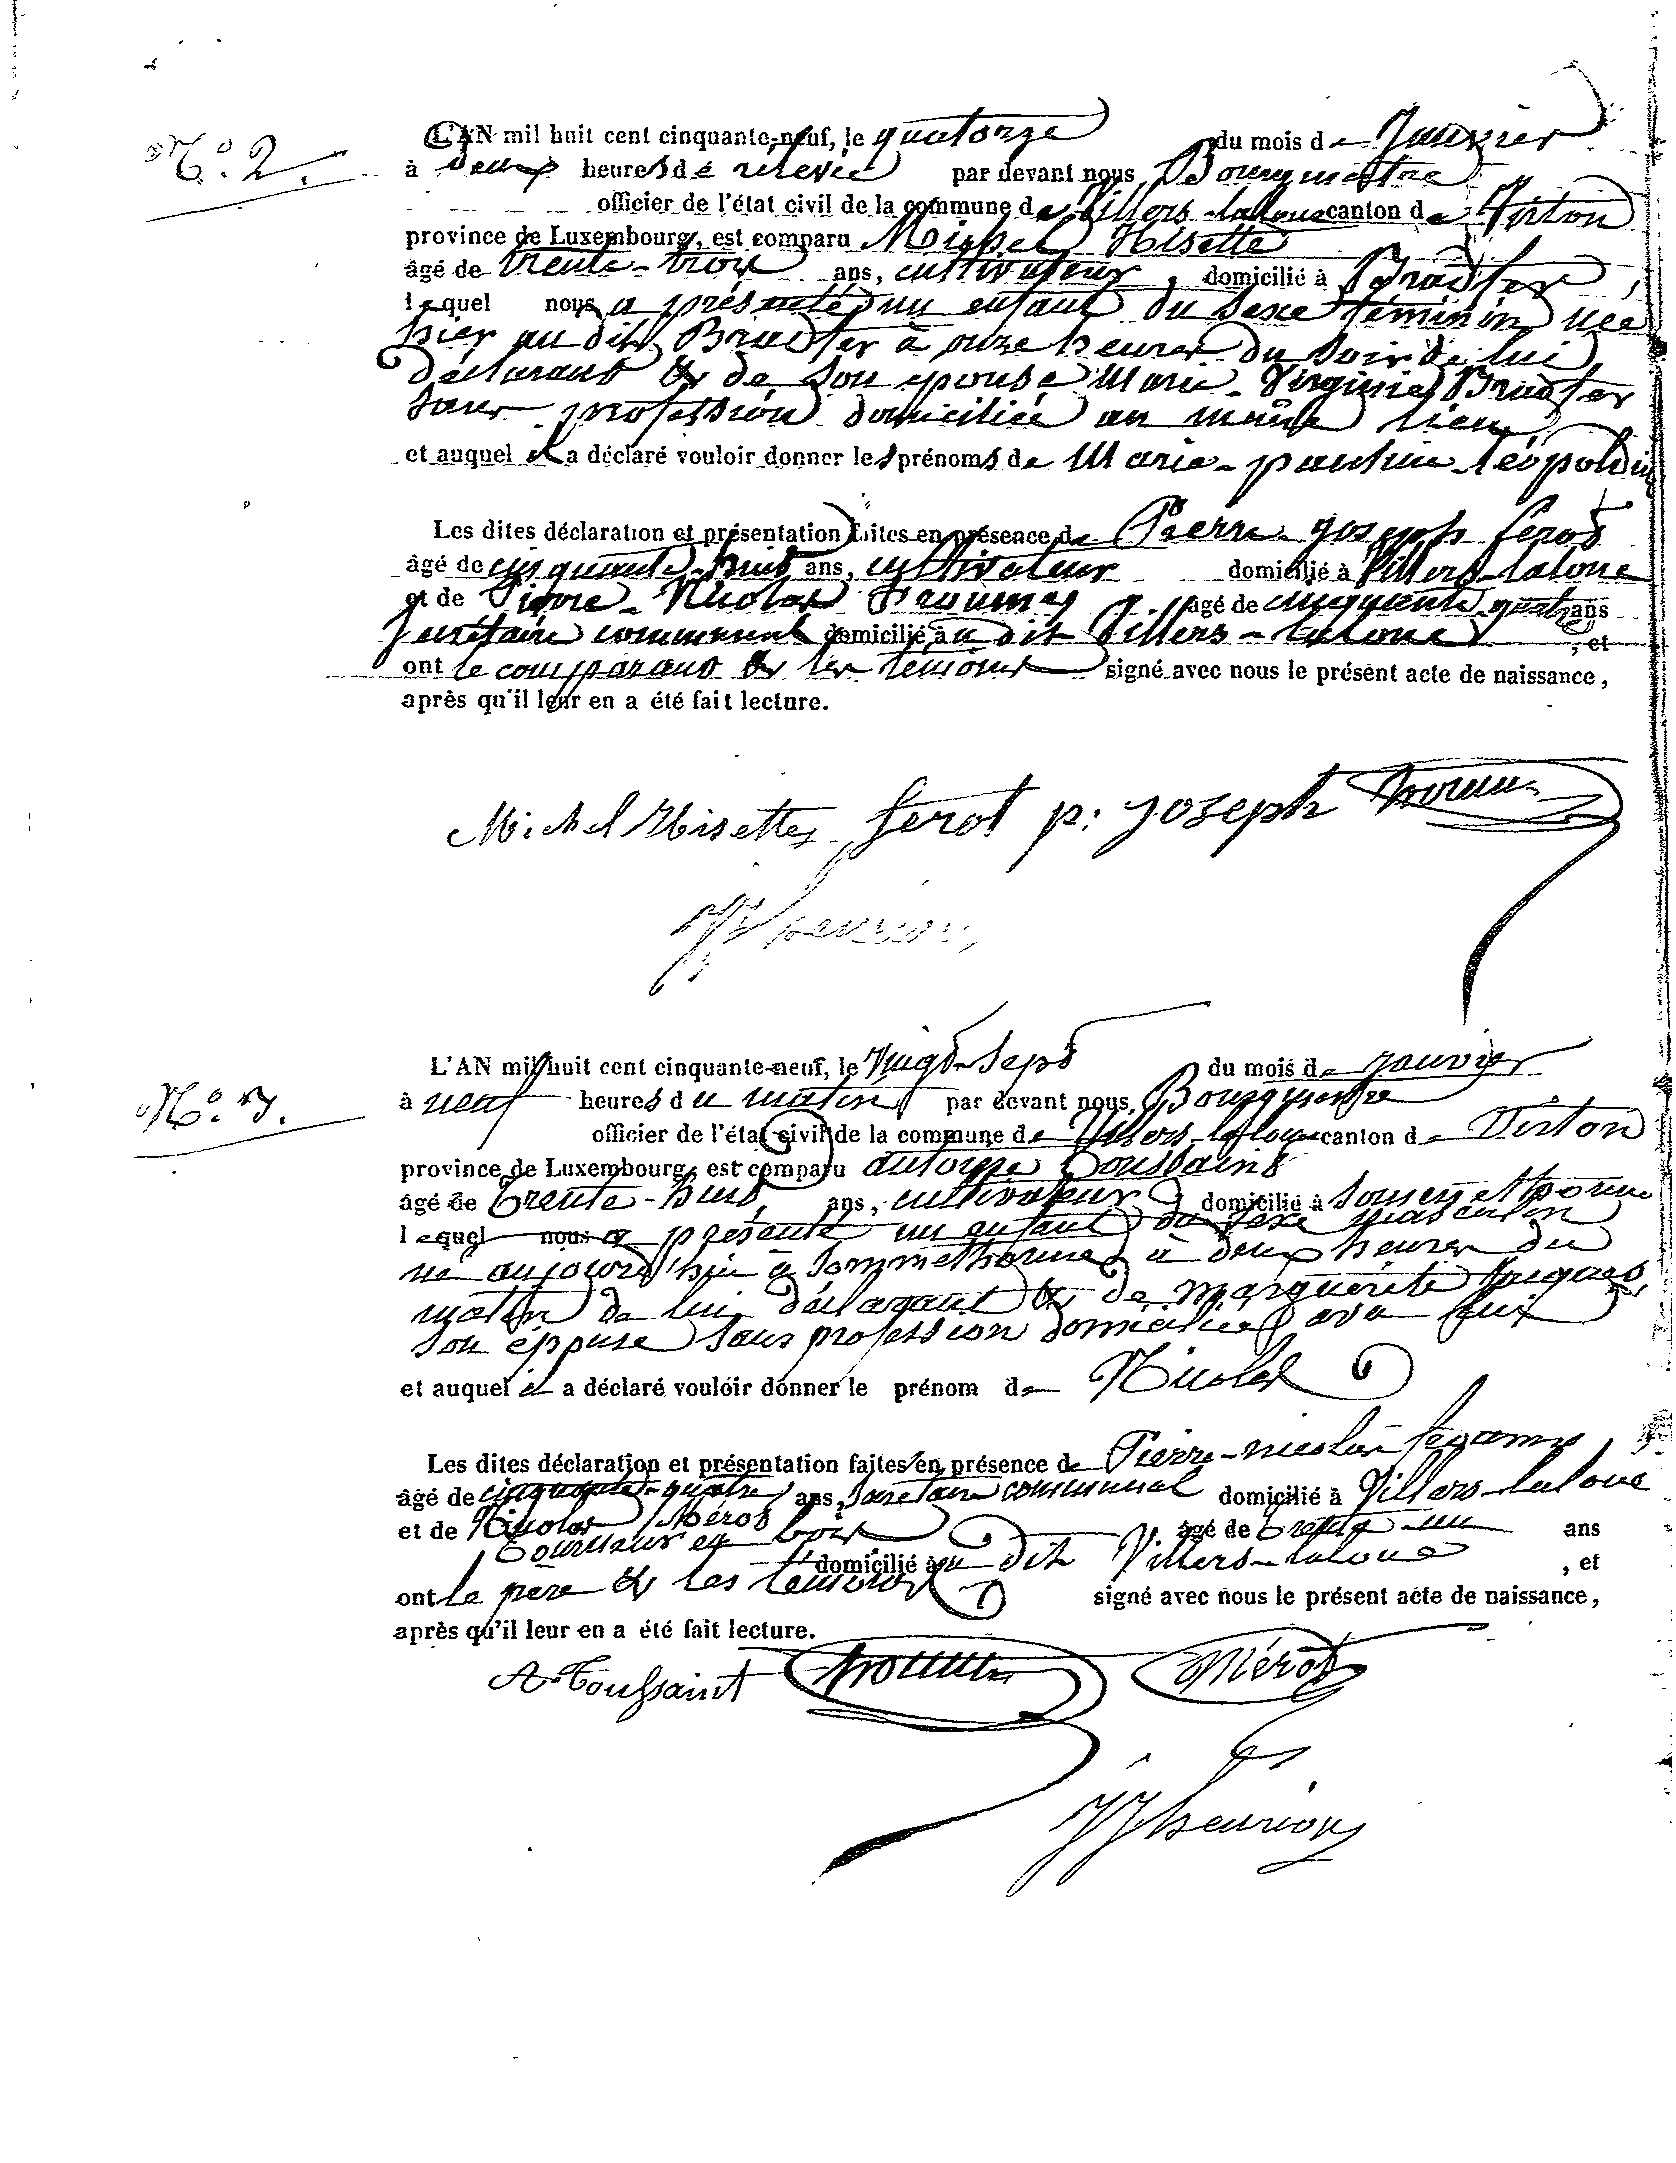 N.° 2.
L'AN mil huit cent cinquante-neuf, le quatorze du mois de Janvier
à deux heures de relevée par devant nous Bourgmestre
officier de l'état civil de la commune de Villers-laloue canton de Virton
province de Luxembourg, est comparu Michel Hisette
âgé de trente-trois ans, cultivateur, domicilié à
lequel nous a présenté un enfant du sexe féminin née
hier au dit à onze heures du soir de lui
déclarant & de son épouse Marie-Virginie
sans profession domiciliée au même lieu
et auquel il a déclaré vouloir donner les prénoms de Marie-pauline-léopoldine
Les dites déclaration et présentation faites en présence de Pierre-Joseph ferot
âgé de cinquante-huit ans, cultivateur domicilié à Villers-laloue
et de Pierre-Nicolas âgé de cinquante-quatre ans
secrétaire communal domicilié au dit Villers-laloue, et
ont le comparant & les témoins signé avec nous le présent acte de naissance,
après qu'il leur en a été fait lecture.
Michel Hisette ferot p: Joseph
JJ henrion
N.° 3.
L'AN mil huit cent cinquante-neuf, le vingt-sept du mois de janvier
à neuf heures du matin par devant nous, Bourgmestre
officier de l'état civil de la commune de Villers-laloue canton de Virton
province de Luxembourg, est comparu antoine Toussaint
âgé de trente-huit ans, cultivateur domicilié à Sommethonne
lequel nous a présenté un enfant du sexe masculin
né aujourd'hui à Sommethonne à deux heures du
matin de lui déclarant & de marguerite Jacques,
son épouse sans profession domiciliée avec lui
et auquel il a déclaré vouloir donner le prénom de Nicolas
Les dites déclaration et présentation faites en présence de Pierre-nicolas
âgé de cinquante-quatre ans, secrétaire communal domicilié à Villers-laloue
et de Nicolas Mérot âgé de trente-un ans
tourneur en bois domicilié au dit Villers-laloue, et
ont le père & les témoins signé avec nous le présent acte de naissance,
après qu'il leur en a été fait lecture.
A. Toussaint Mérot
JJ henrion